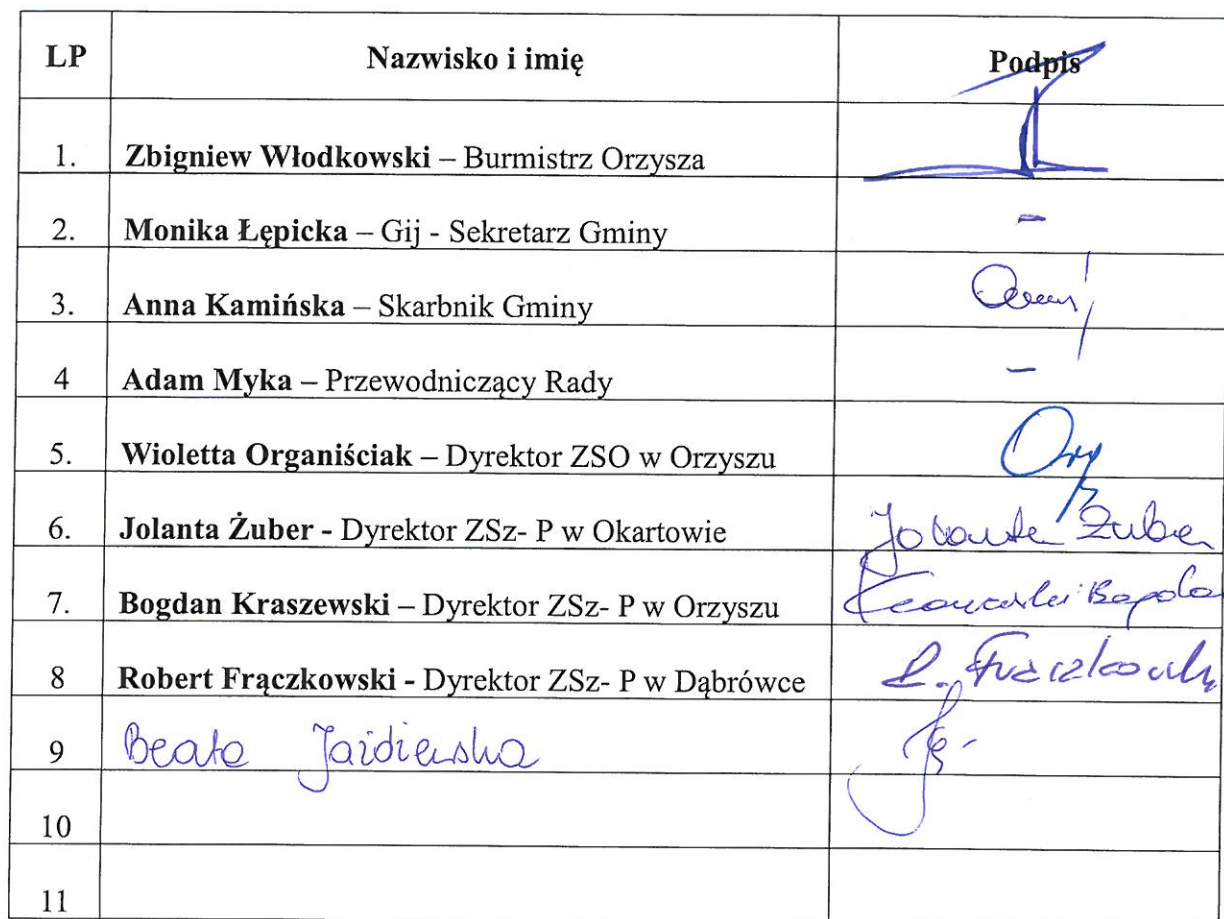 LP Nazwisko i imię Podpis
1. Zbigniew Włodkowski – Burmistrz Orzysza
2. Monika Łępicka – Gij - Sekretarz Gminy -
3. Anna Kamińska – Skarbnik Gminy
4 Adam Myka – Przewodniczący Rady -
5. Wioletta Organiściak – Dyrektor ZSO w Orzyszu
6. Jolanta Żuber - Dyrektor ZSz- P w Okartowie Jolanta Żuber
7. Bogdan Kraszewski – Dyrektor ZSz- P w Orzyszu
8 Robert Frączkowski - Dyrektor ZSz- P w Dąbrówce R. Frączkowski
9 Beata
10
11